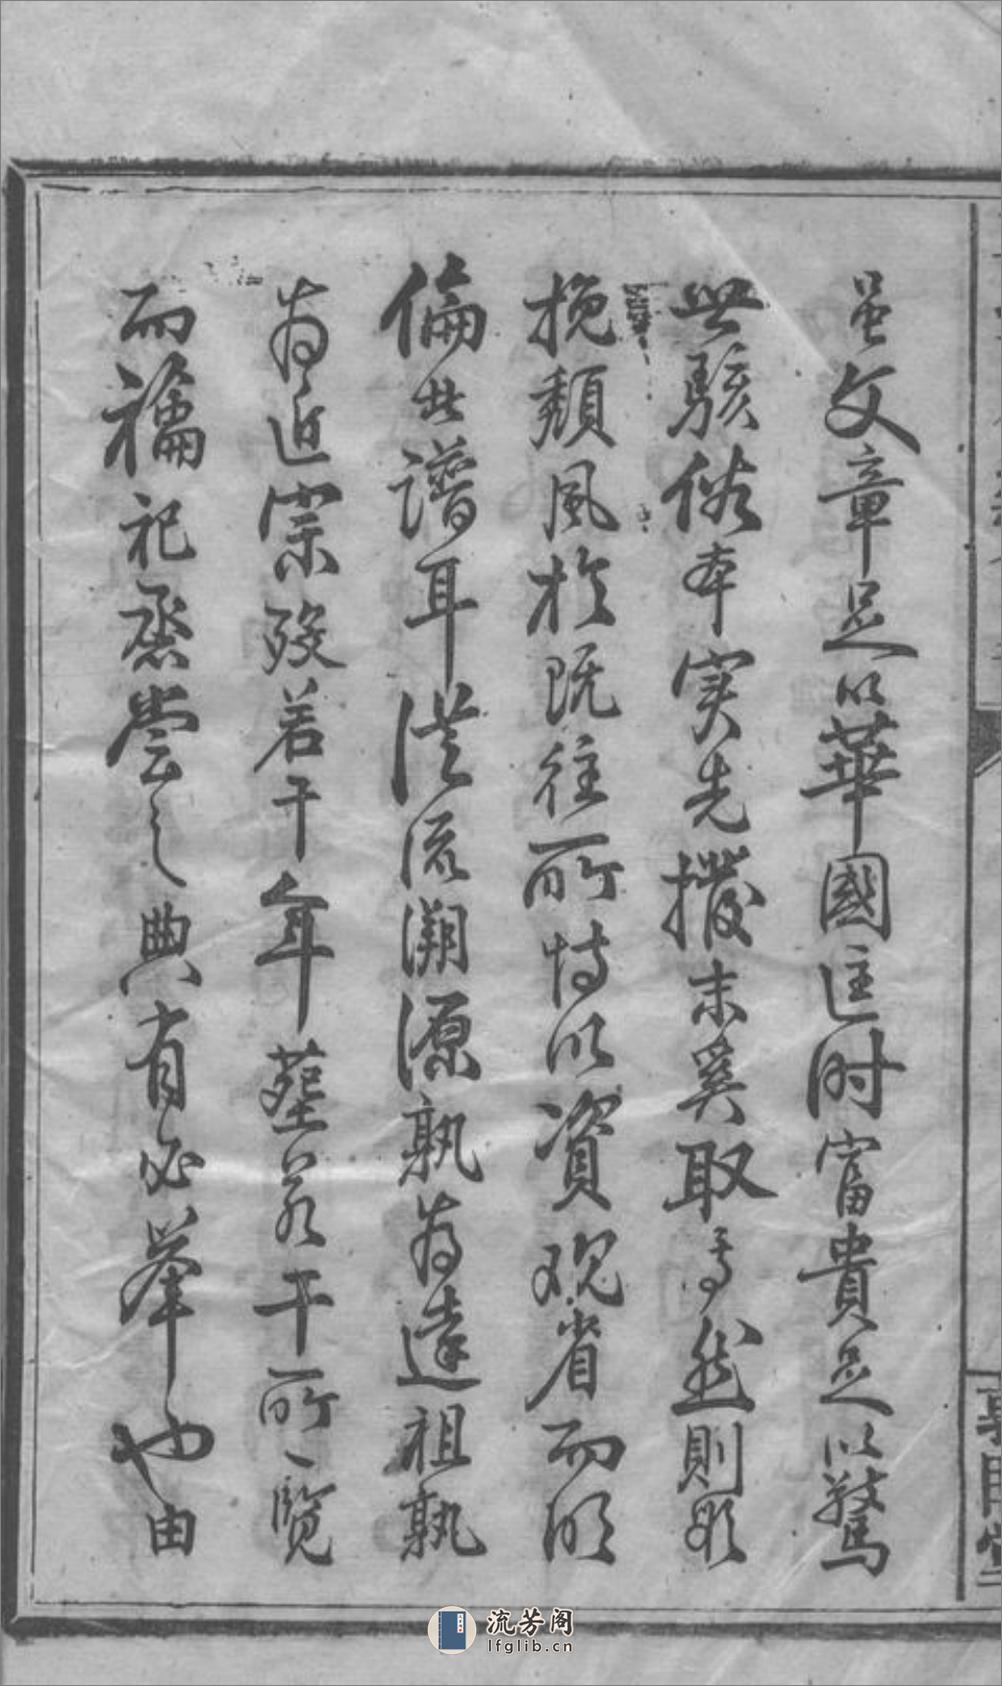 虽文章足以華國匡时富貴足以驚
世駭俗本实先撥末奚取焉然則欲
挽頹風於既往所恃以資观省而明
倫者譜耳從流溯源孰为遠祖孰
为近宗殁若干年葬若干所一覽
而禴祀烝尝之典有必举也由
流芳阁
lfglib.cn